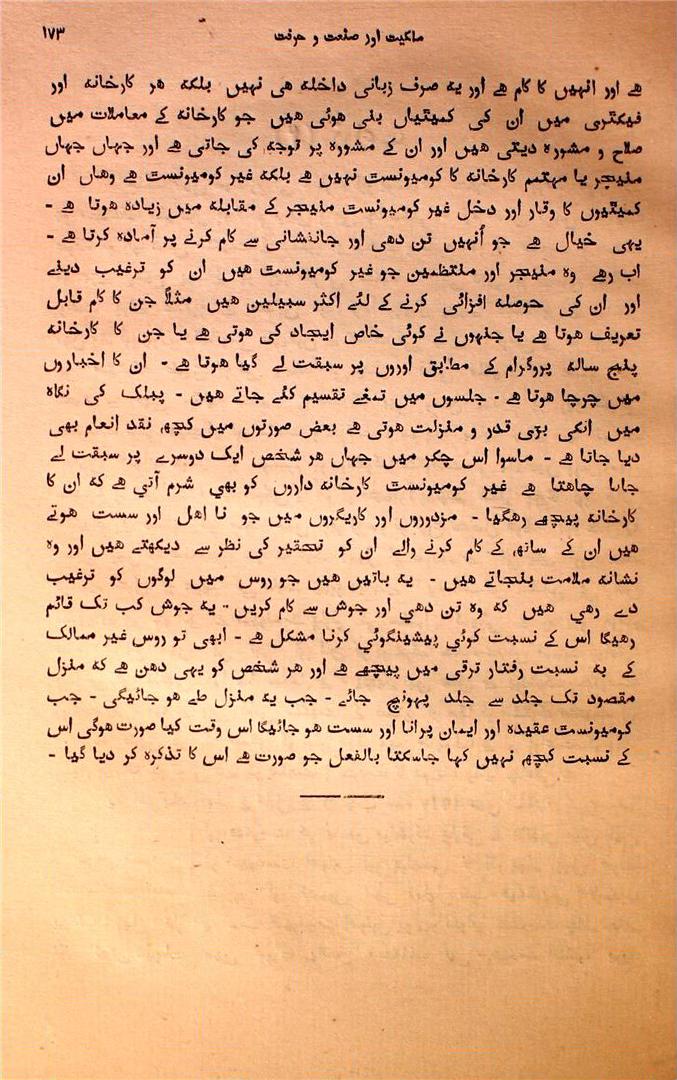 ملکیت اور صنعت و حرفت ۱۷۳
ہے اور انہیں کا کام ہے اور یہ صرف زبانی داخلہ ہی نہیں بلکہ ہر کارخانہ اور
فیکٹری میں ان کی کمیٹیاں بنی ہوئی ہیں جو کارخانہ کے معاملات میں
صلاح و مشورہ دیتی ہیں اور ان کے مشورہ پر توجہ کی جاتی ہے اور جہاں جہاں
منیجر یا مہتمم کارخانہ کا کومیونست نہیں ہے بلکہ غیر کومیونست ہے وہاں ان
کمیٹیوں کا وقار اور دخل غیر کومیونست منیجر کے مقابلہ میں زیادہ ہوتا ہے -
یہی خیال ہے جو اُنہیں تن دہی اور جانفشانی سے کام کرنے پر آمادہ کرتا ہے -
اب رہے وہ منیجر اور منتظمین جو غیر کومیونست ہیں ان کو ترغیب دینے
اور ان کی حوصلہ افزائی کرنے کے لئے اکثر سبیلیں ہیں مثلاً جن کا کام قابل
تعریف ہوتا ہے یا جنہوں نے کوئی خاص ایجاد کی ہوتی ہے یا جن کا کارخانہ
پنج سالہ پروگرام کے مطابق اوروں پر سبقت لے گیا ہوتا ہے - ان کا اخباروں
میں چرچا ہوتا ہے - جلسوں میں تمغے تقسیم کئے جاتے ہیں - پبلک کی نگاہ
میں انکی بڑی قدر و منزلت ہوتی ہے بعض صورتوں میں کچھ نقد انعام بھی
دیا جاتا ہے - ماسوا اس چکر میں جہاں ہر شخص ایک دوسرے پر سبقت لے
جانا چاہتا ہے غیر کومیونست کارخانہ داروں کو بھی شرم آتی ہے کہ ان کا
کارخانہ پیچھے رہگیا - مزدوروں اور کاریگروں میں جو نا اہل اور سست ہوتے
ہیں ان کے ساتھ کے کام کرنے والے ان کو تحقیر کی نظر سے دیکھتے ہیں اور وہ
نشانہ ملامت بنجاتے ہیں - یہ باتیں ہیں جو روس میں لوگوں کو ترغیب
دے رہی ہیں کہ وہ تن دہی اور جوش سے کام کریں - یہ جوش کب تک قائم
رہیگا اس کے نسبت کوئی پیشینگوئی کرنا مشکل ہے - ابھی تو روس غیر ممالک
کے بہ نسبت رفتار ترقی میں پیچھے ہے اور ہر شخص کو یہی دھن ہے کہ منزل
مقصود تک جلد سے جلد پہونچ جائے - جب یہ منزل طے ہو جائیگی - جب
کومیونست عقیدہ اور ایمان پرانا اور سست ہو جائیگا اس وقت کیا صورت ہوگی اس
کے نسبت کچھ نہیں کہا جاسکتا بالفعل جو صورت ہے اس کا تذکرہ کر دیا گیا -